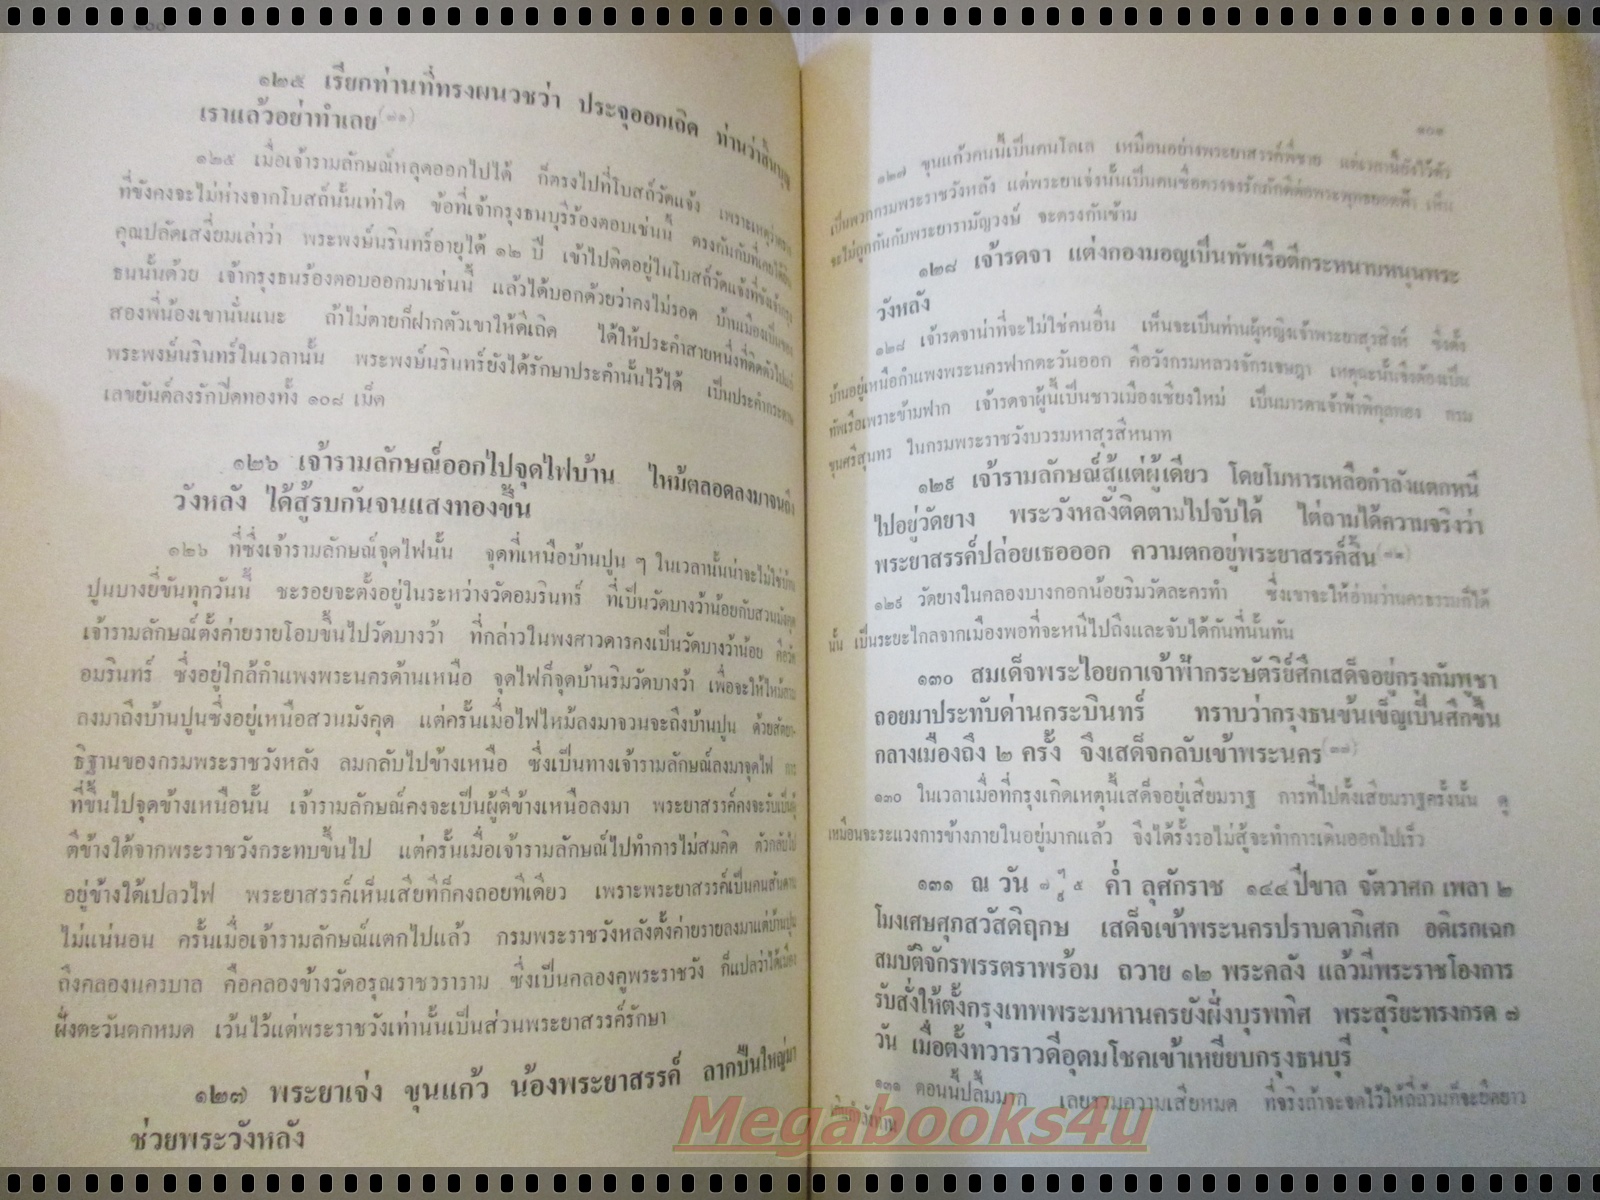 ๑๐๐
๑๒๕ เรียกท่านที่ทรงผนวชว่า ประจุออกเถิด ท่านว่าสิ้นบุญ
เราแล้วอย่าทำเลย(๗๑)
๑๒๕ เมื่อเจ้ารามลักษณ์หลุดออกไปได้ ก็ตรงไปที่โบสถ์วัดแจ้ง เพราะเหตุว่า
ที่ขังคงจะไม่ห่างจากโบสถ์นั้นเท่าใด ข้อที่เจ้ากรุงธนบุรีร้องตอบเช่นนี้ ตรงกันกับที่เคยได้ยิน
คุณปลัดเสงี่ยมเล่าว่า พระพงษ์นรินทร์อายุได้ ๑๒ ปี เข้าไปติดอยู่ในโบสถ์วัดแจ้งที่ขังเจ้ากรุง
ธนนั้นด้วย เจ้ากรุงธนร้องตอบออกมาเช่นนี้ แล้วได้บอกด้วยว่าคงไม่รอด บ้านเมืองเป็นของ
สองพี่น้องเขานั่นแนะ ถ้าไม่ตายก็ฝากตัวเขาให้ดีเถิด ได้ให้ประคำสายหนึ่งที่ติดตัวไปแก่
พระพงษ์นรินทร์ในเวลานั้น พระพงษ์นรินทร์ยังได้รักษาประคำนั้นไว้ได้ เป็นประคำกระดาษ
เลขยันต์ลงรักปิดทองทั้ง ๑๐๘ เม็ด
๑๒๖ เจ้ารามลักษณ์ออกไปจุดไฟบ้าน ไหม้ตลอดลงมาจนถึง
วังหลัง ได้สู้รบกันจนแสงทองขึ้น
๑๒๖ ที่ซึ่งเจ้ารามลักษณ์จุดไฟนั้น จุดที่เหนือบ้านปูน ๆ ในเวลานั้นน่าจะไม่ใช่บ้าน
ปูนบางยี่ขันทุกวันนี้ ชะรอยจะตั้งอยู่ในระหว่างวัดอมรินทร์ ที่เป็นวัดบางว้าน้อยกับสวนมังคุด
เจ้ารามลักษณ์ตั้งค่ายรายโอบขึ้นไปวัดบางว้า ที่กล่าวในพงศาวดารคงเป็นวัดบางว้าน้อย คือวัด
อมรินทร์ ซึ่งอยู่ใกล้กำแพงพระนครด้านเหนือ จุดไฟก็จุดบ้านริมวัดบางว้า เพื่อจะให้ไหม้ลาม
ลงมาถึงบ้านปูนซึ่งอยู่เหนือสวนมังคุด แต่ครั้นเมื่อไฟไหม้ลงมาจวนจะถึงบ้านปูน ด้วยสัตยา-
ธิฐานของกรมพระราชวังหลัง ลมกลับไปข้างเหนือ ซึ่งเป็นทางเจ้ารามลักษณ์ลงมาจุดไฟ การ
ที่ขึ้นไปจุดข้างเหนือนั้น เจ้ารามลักษณ์คงจะเป็นผู้ตีข้างเหนือลงมา พระยาสรรค์คงจะรับเป็นผู้
ตีข้างใต้จากพระราชวังกระทบขึ้นไป แต่ครั้นเมื่อเจ้ารามลักษณ์ไปทำการไม่สมคิด ตัวกลับไป
อยู่ข้างใต้เปลวไฟ พระยาสรรค์เห็นเสียทีก็คงถอยทีเดียว เพราะพระยาสรรค์เป็นคนสันดาน
ไม่แน่นอน ครั้นเมื่อเจ้ารามลักษณ์แตกไปแล้ว กรมพระราชวังหลังตั้งค่ายรายลงมาแต่บ้านปูน
ถึงคลองนครบาล คือคลองข้างวัดอรุณราชวราราม ซึ่งเป็นคลองคูพระราชวัง ก็แปลว่าได้เมือง
ฝั่งตะวันตกหมด เว้นไว้แต่พระราชวังเท่านั้นเป็นส่วนพระยาสรรค์รักษา
๑๒๗ พระยาเจ่ง ขุนแก้ว น้องพระยาสรรค์ ลากปืนใหญ่มา
ช่วยพระวังหลัง
๑๐๑
๑๒๗ ขุนแก้วคนนี้เป็นคนโลเล เหมือนอย่างพระยาสรรค์พี่ชาย แต่เวลานี้ยังไว้ตัว
เป็นพวกกรมพระราชวังหลัง แต่พระยาเจ่งนั้นเป็นคนซื่อตรงจงรักภักดีต่อพระพุทธยอดฟ้า เห็น
จะไม่ถูกกันกับพระยารามัญวงษ์ จะตรงกันข้าม
๑๒๘ เจ้ารดจา แต่งกองมอญเป็นทัพเรือตีกระหนาบหนุนพระ
วังหลัง
๑๒๘ เจ้ารดจาน่าที่จะไม่ใช่คนอื่น เห็นจะเป็นท่านผู้หญิงเจ้าพระยาสุรสิงห์ ซึ่งตั้ง
บ้านอยู่เหนือกำแพงพระนครฟากตะวันออก คือวังกรมหลวงจักรเจษฎา เหตุฉะนั้นจึงต้องเป็น
ทัพเรือเพราะข้ามฟาก เจ้ารดจาผู้นี้เป็นชาวเมืองเชียงใหม่ เป็นมารดาเจ้าฟ้าพิกุลทอง กรม
ขุนศรีสุนทร ในกรมพระราชวังบวรมหาสุรสีหนาท
๑๒๙ เจ้ารามลักษณ์สู้แต่ผู้เดียว โดยโมหารเหลือกำลังแตกหนี
ไปอยู่วัดยาง พระวังหลังติดตามไปจับได้ ไต่ถามได้ความจริงว่า
พระยาสรรค์ปล่อยเธอออก ความตกอยู่พระยาสรรค์สิ้น
๑๒๙ วัดยางในคลองบางกอกน้อยริมวัดละครทำ ซึ่งเขาจะให้อ่านว่านครธรรมก็ได้
นั้น เป็นระยะไกลจากเมืองพอที่จะหนีไปถึงและจับได้กันที่นั้นทัน
๑๓๐ สมเด็จพระไอยกาเจ้าฟ้ากระษัตริย์ศึกเสด็จอยู่กรุงกัมพูชา
ถอยมาประทับด่านกระบินทร์ ทราบว่ากรุงธนขันเข็ญเป็นศึกขึ้น
กลางเมืองถึง ๒ ครั้ง จึงเสด็จกลับเข้าพระนคร
๑๓๐ ในเวลาเมื่อที่กรุงเกิดเหตุนี้เสด็จอยู่เสียมราฐ การที่ไปตั้งเสียมราฐครั้งนั้น ดู
เหมือนจะระแวงการข้างภายในอยู่มากแล้ว จึงได้รั้งรอไม่สู้จะทำการเดินออกไปเร็ว
๑๓๑ ณ วัน ๗ ๕ ค่ำ ลุศักราช ๑๔๔ ปีขาล จัตวาศก เพลา ๒
โมงเศษศุภสวัสดิฤกษ เสด็จเข้าพระนครปราบดาภิเศก อดิเรกเฉก
สมบัติจักรพรรตราพร้อม ถวาย ๑๒ พระคลัง แล้วมีพระราชโองการ
รับสั่งให้ตั้งกรุงเทพพระมหานครยังฝั่งบุรพทิศ พระสุริยะทรงกรด ๗
วัน เมื่อตั้งทวาราวดีอุดมโชคเข้าเหยียบกรุงธนบุรี
๑๓๑ ตอนนี้ปลื้มมาก เลยรวมความเสียหมด ที่จริงถ้าจะจดไว้ให้ถี่ถ้วนก็จะยืดยาว
Megabooks4u